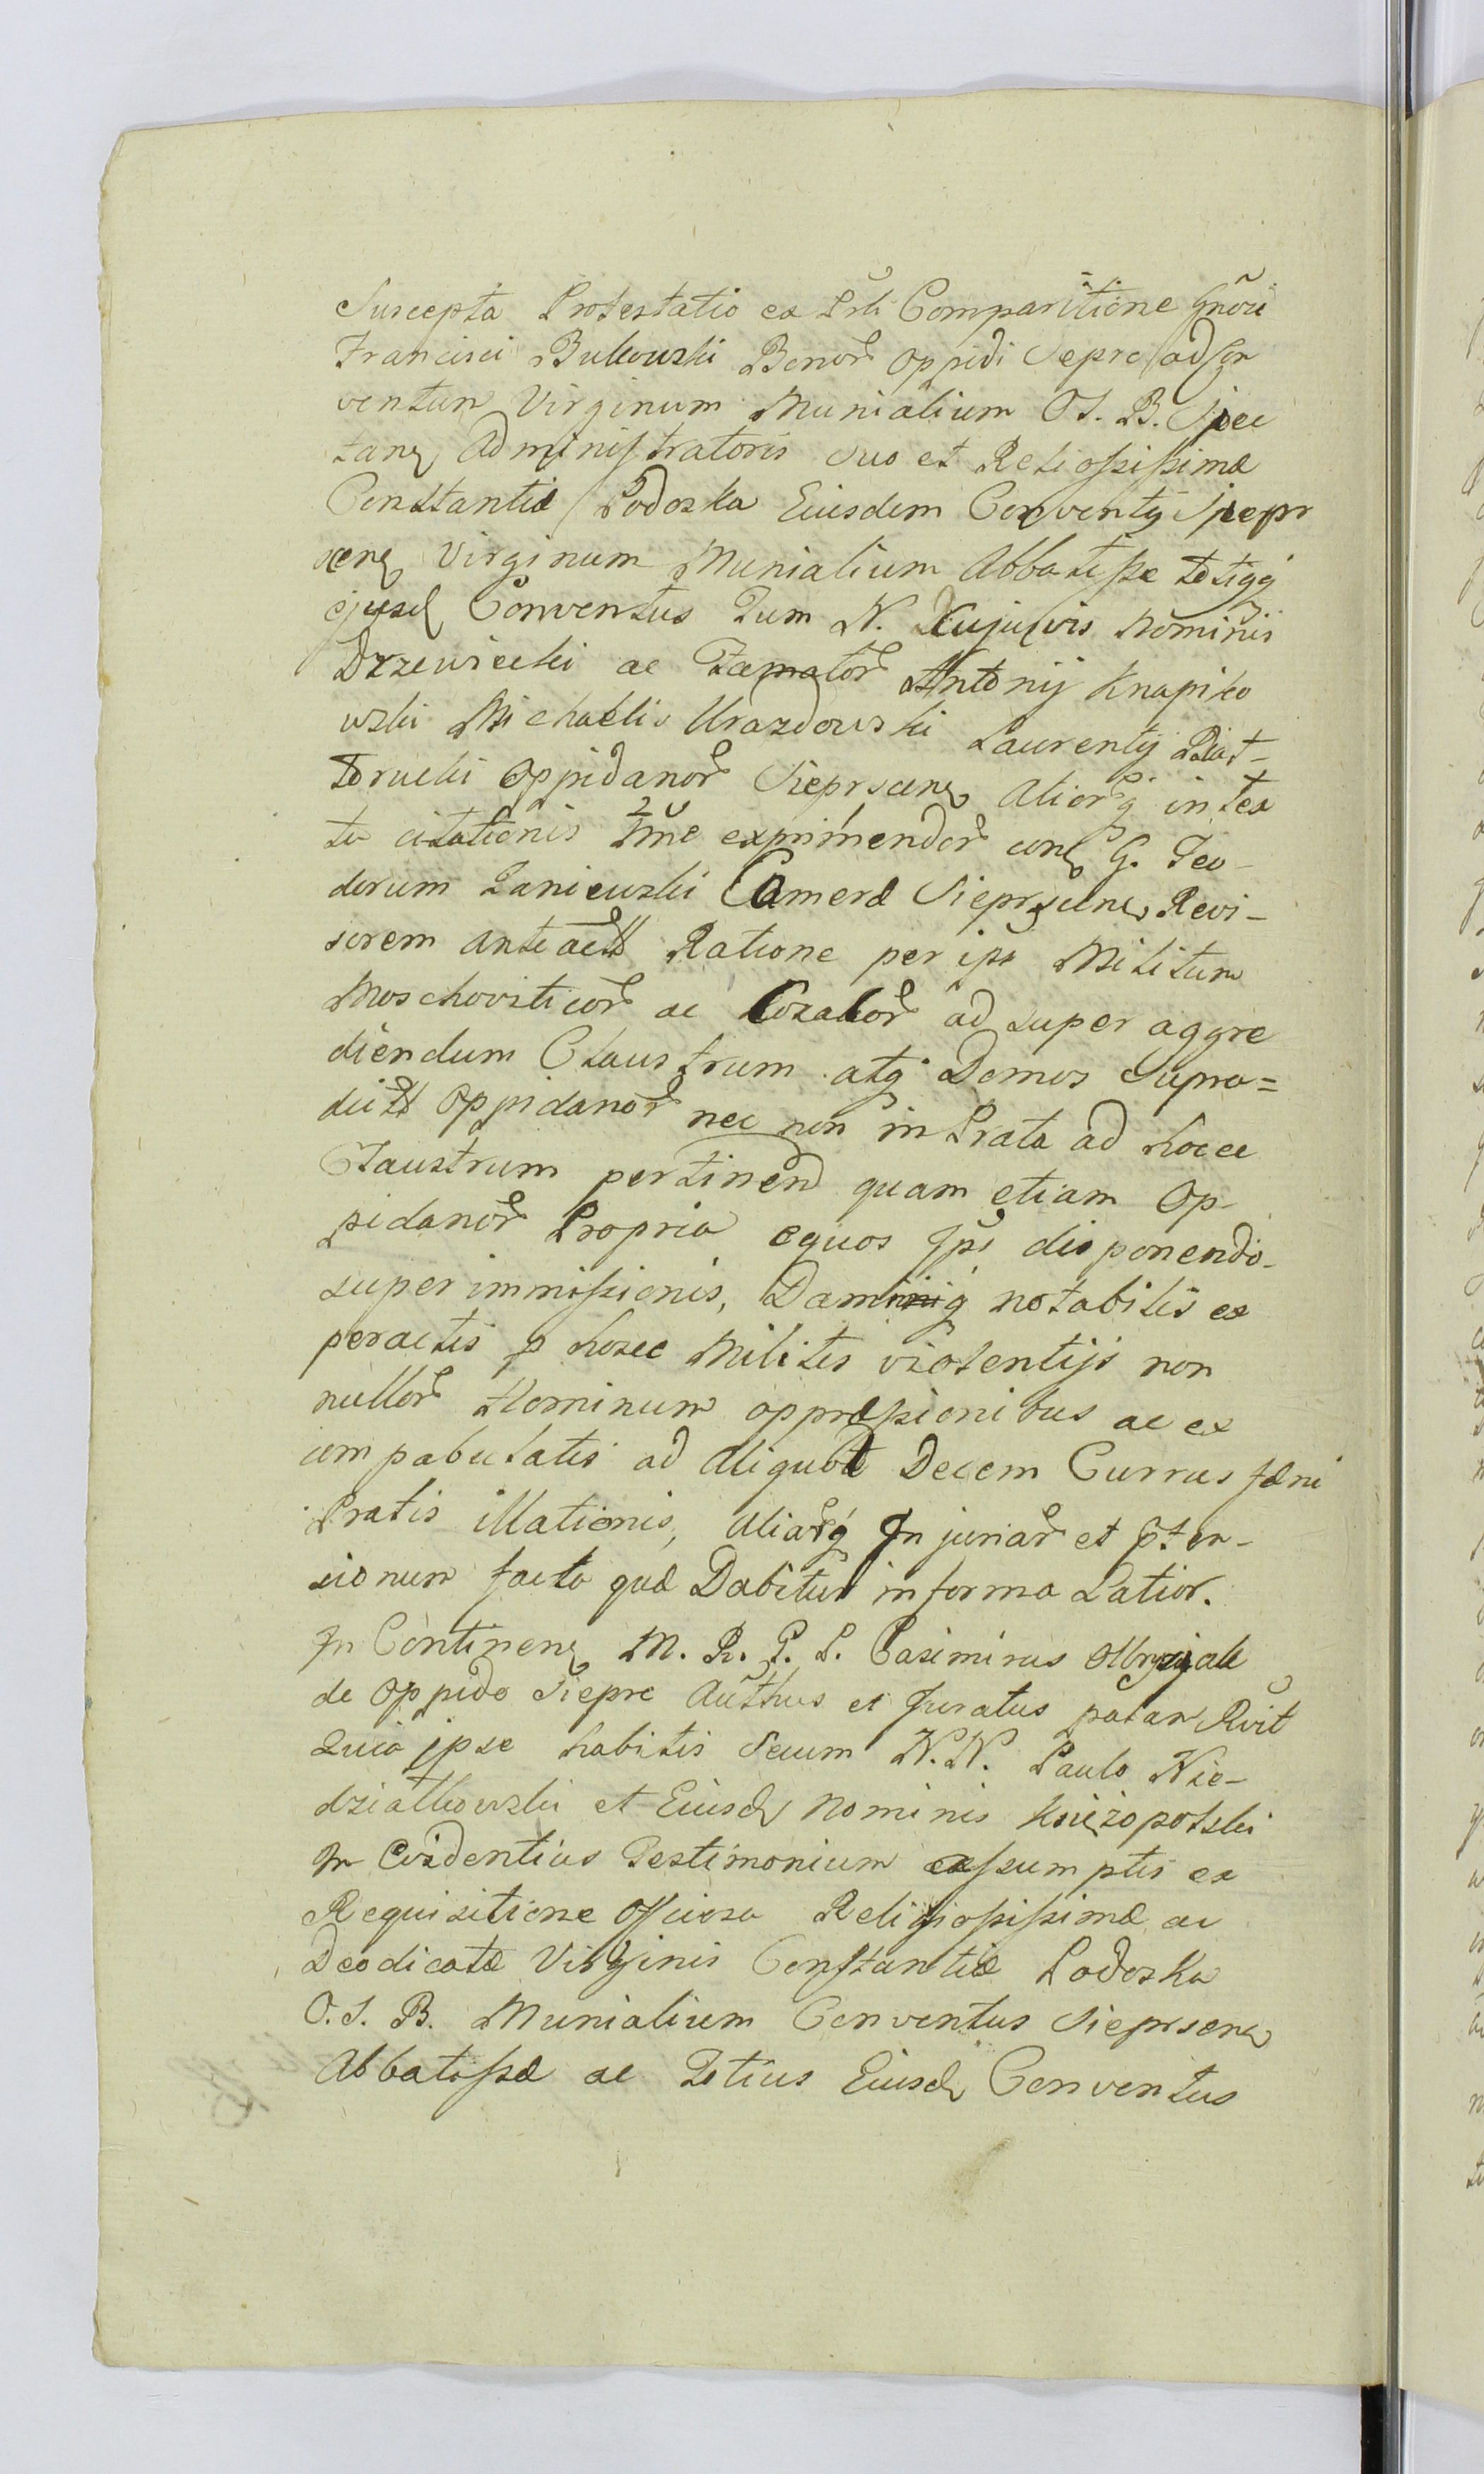 Suscepta Protestatio ex Prli Comparitione Gnori
Francisci Bukowski Bonor Oppidi Sepre ad Con
ventum Virginum Monialium O S. B. Spec
tan Administratoris suo et Reliosissimæ
Constantiæ Podoska Eiusdem Conventq Siepr
cens Virginum Monialium Abbatissæ totiqq
ejusd Conventus Tum N. Cujusvis Nominis
Drzewiecki ac Famator Antonij Knapiko
wski Michaelis Urazdowski Laurentij Piat-
Oppidanor Sieprscens Aliorq in tex
tu citationis exprimendor con G. Teo-
dorum Zaniewski Cameræ Sieprscens Revi-
sorem Ratione per ips Militum
Moschovsticor ac Cozakor ad super aggre
diendum Claustrum atq Domos Supra=
dict Oppidanor nec non in Prata ad hocce
Claustrum pertinend quam etiam Op-
pidanor Propria equos Ips disponendo-
super immissionis, Damniq notabilis ex
peractis p hosce Milites violentijs non
nullor Hominum oppræssionibus ac ex
compabulatis ad Aliquot Decem Currus fæni
Pratis illationis, Aliarq Injuriar et
sionum facta quæ Dabitur in forma Latior.
In Continens M. R. G. P. Casimirus
de Oppido Siepre Authus et Juratus palam Rvit
Quia ipse habitis Secum N. N. Paulo Nie-
działkowski et Eiusd Nominis Księżopolski
In Evidentius Testimonium assumptis ex
Requisitione Officiosa Religiosissimæ ac
Deodicatæ Virginis Constantiæ Podoska
O. S. B. Monialium Conventus Sieprscens
Abbatissæ ac Totius Eiusd Conventus